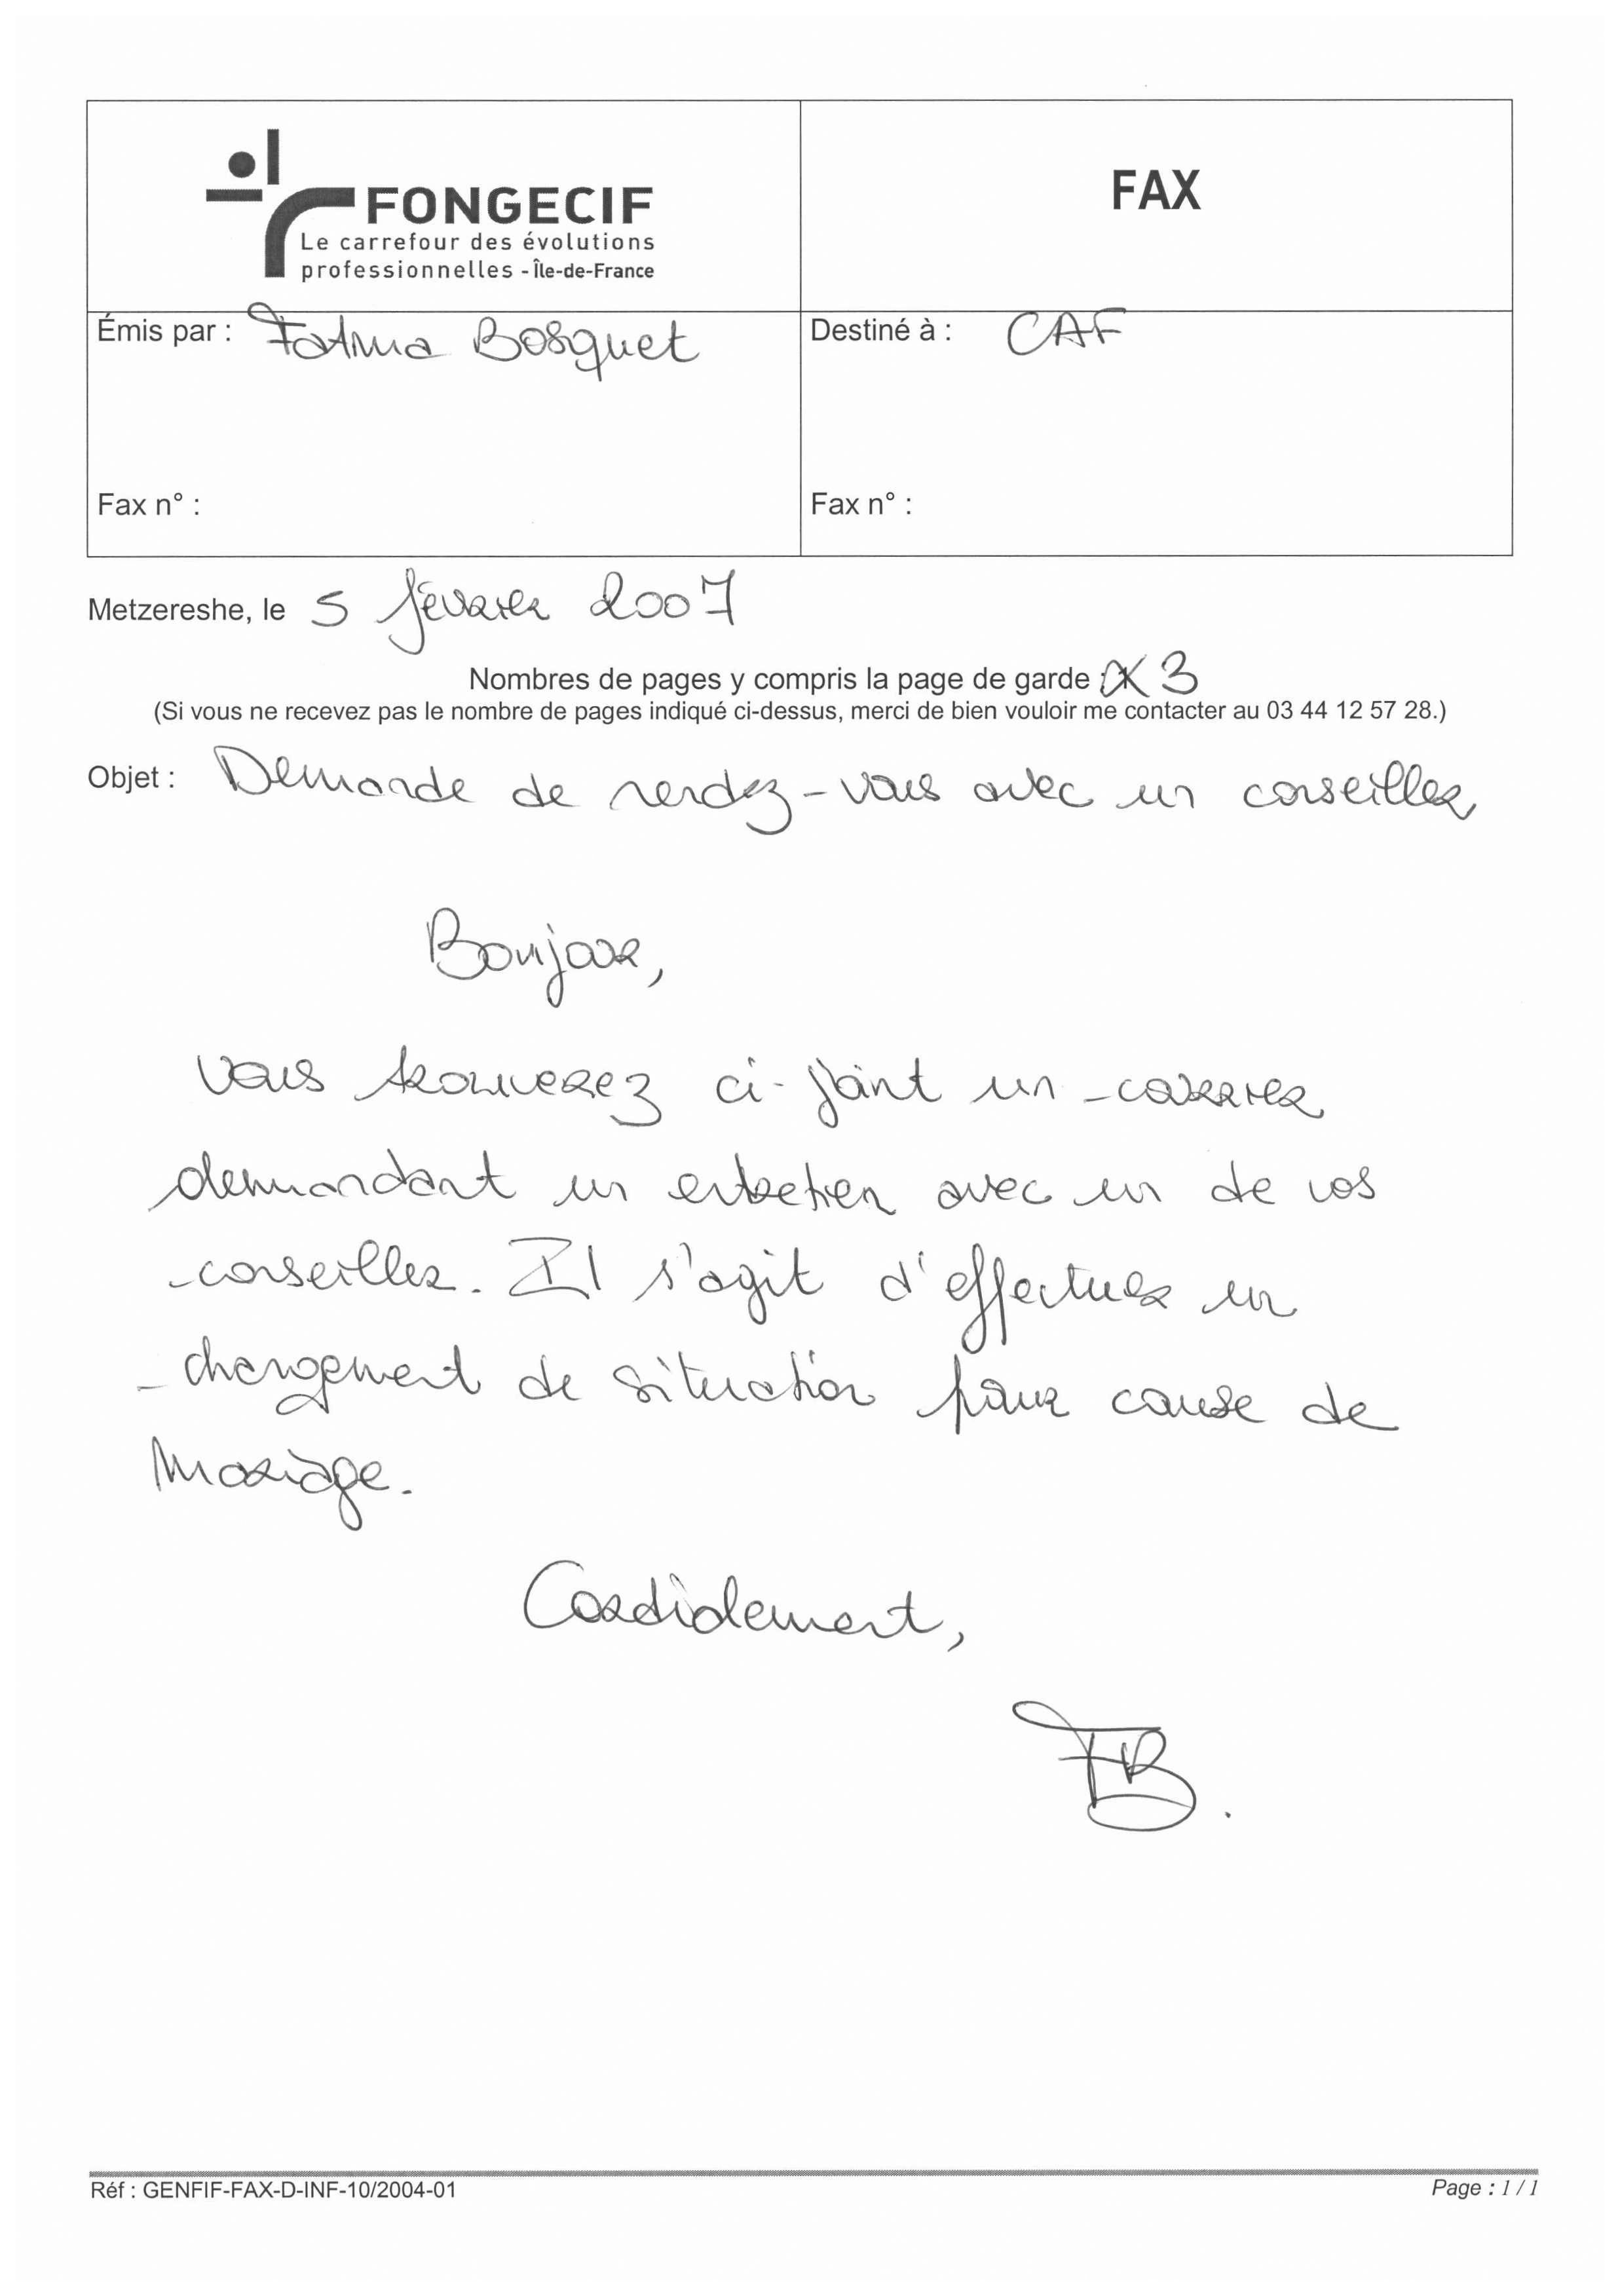 FONGECIF
Le carrefour des évolutions
professionnelles - Île-de-France
FAX
Émis par : Fatma Bosquet
Destiné à : CAF
Fax n° :
Fax n° :
Metzereshe, le 5 février 2007
Nombres de pages y compris la page de garde : 3
(Si vous ne recevez pas le nombre de pages indiqué ci-dessus, merci de bien vouloir me contacter au 03 44 12 57 28.)
Objet : Demande de rendez-vous avec un conseiller
Bonjour,
Vous trouverez ci-joint un courrier
demandant un entretien avec un de vos
conseiller. Il s'agit d'effectuer un
changement de situation pour cause de
mariage.
Cordialement,
FB.
Réf : GENFIF-FAX-D-INF-10/2004-01
Page : 1 / 1